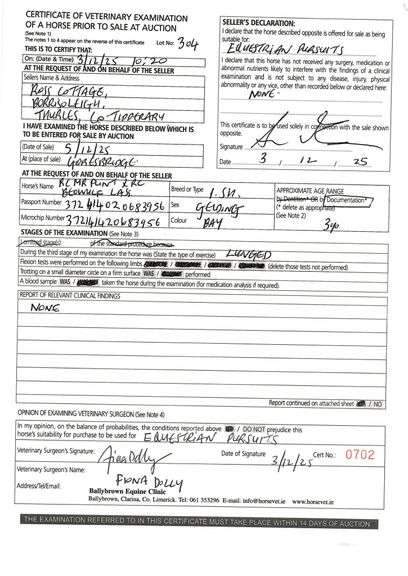 CERTIFICATE OF VETERINARY EXAMINATION
OF A HORSE PRIOR TO SALE AT AUCTION
(See Note 1)
The notes 1 to 4 appear on the reverse of this certificate Lot No: 304
THIS IS TO CERTIFY THAT:
On: (Date & Time) 3/12/25 10.20
AT THE REQUEST OF AND ON BEHALF OF THE SELLER
Sellers Name & Address
ROSS COTTAGE,
BORRISOLEIGH,
THURLES, CO TIPPERARY
I HAVE EXAMINED THE HORSE DESCRIBED BELOW WHICH IS
TO BE ENTERED FOR SALE BY AUCTION
(Date of Sale) 5/12/25
At (place of sale) GORESBRIDGE
SELLER'S DECLARATION:
I declare that the horse described opposite is offered for sale as being
suitable for:
EQUESTRIAN PURSUITS
I declare that this horse has not received any surgery, medication or
abnormal nutrients likely to interfere with the findings of a clinical
examination and is not subject to any disease, injury, physical
abnormality or any vice, other than recorded below or declared here:
NONE
This certificate is to be used solely in connection with the sale shown
opposite.
Signature
Date 3, 12, 25
AT THE REQUEST OF AND ON BEHALF OF THE SELLER
Horse's Name
BEOWULF LAS
Breed or Type I.SH.
Passport Number 372414020683956
Sex GELDING
Microchip Number 372141420683956
Colour BAY
APPROXIMATE AGE RANGE
by Dentition* OR by Documentation*
(* delete as appropriate)
(See Note 2)
3yo
STAGES OF THE EXAMINATION (See Note 3)
I omitted stage(s) of the standard procedure because
During the third stage of my examination the horse was (State the type of exercise) LUNGED
Flexion tests were performed on the following limbs (delete those tests not performed)
Trotting on a small diameter circle on a firm surface WAS / performed
A blood sample WAS / taken from the horse during the examination (for medication analysis if required).
REPORT OF RELEVANT CLINICAL FINDINGS
NONE
Report continued on attached sheet / NO
OPINION OF EXAMINING VETERINARY SURGEON (See Note 4)
In my opinion, on the balance of probabilities, the conditions reported above / DO NOT prejudice this
horse's suitability for purchase to be used for EQUESTRIAN PURSUITS
Veterinary Surgeon's Signature: Fiona Dolly Date of Signature 3/12/25 Cert No.: 0702
Veterinary Surgeon's Name: FIONA DOLLY
Address/Tel/Email:
Ballybrown Equine Clinic
Ballybrown, Clarina, Co. Limerick. Tel: 061 353296 E-mail: info@horsevet.ie www.horsevet.ie
THE EXAMINATION REFERRED TO IN THIS CERTIFICATE MUST TAKE PLACE WITHIN 14 DAYS OF AUCTION